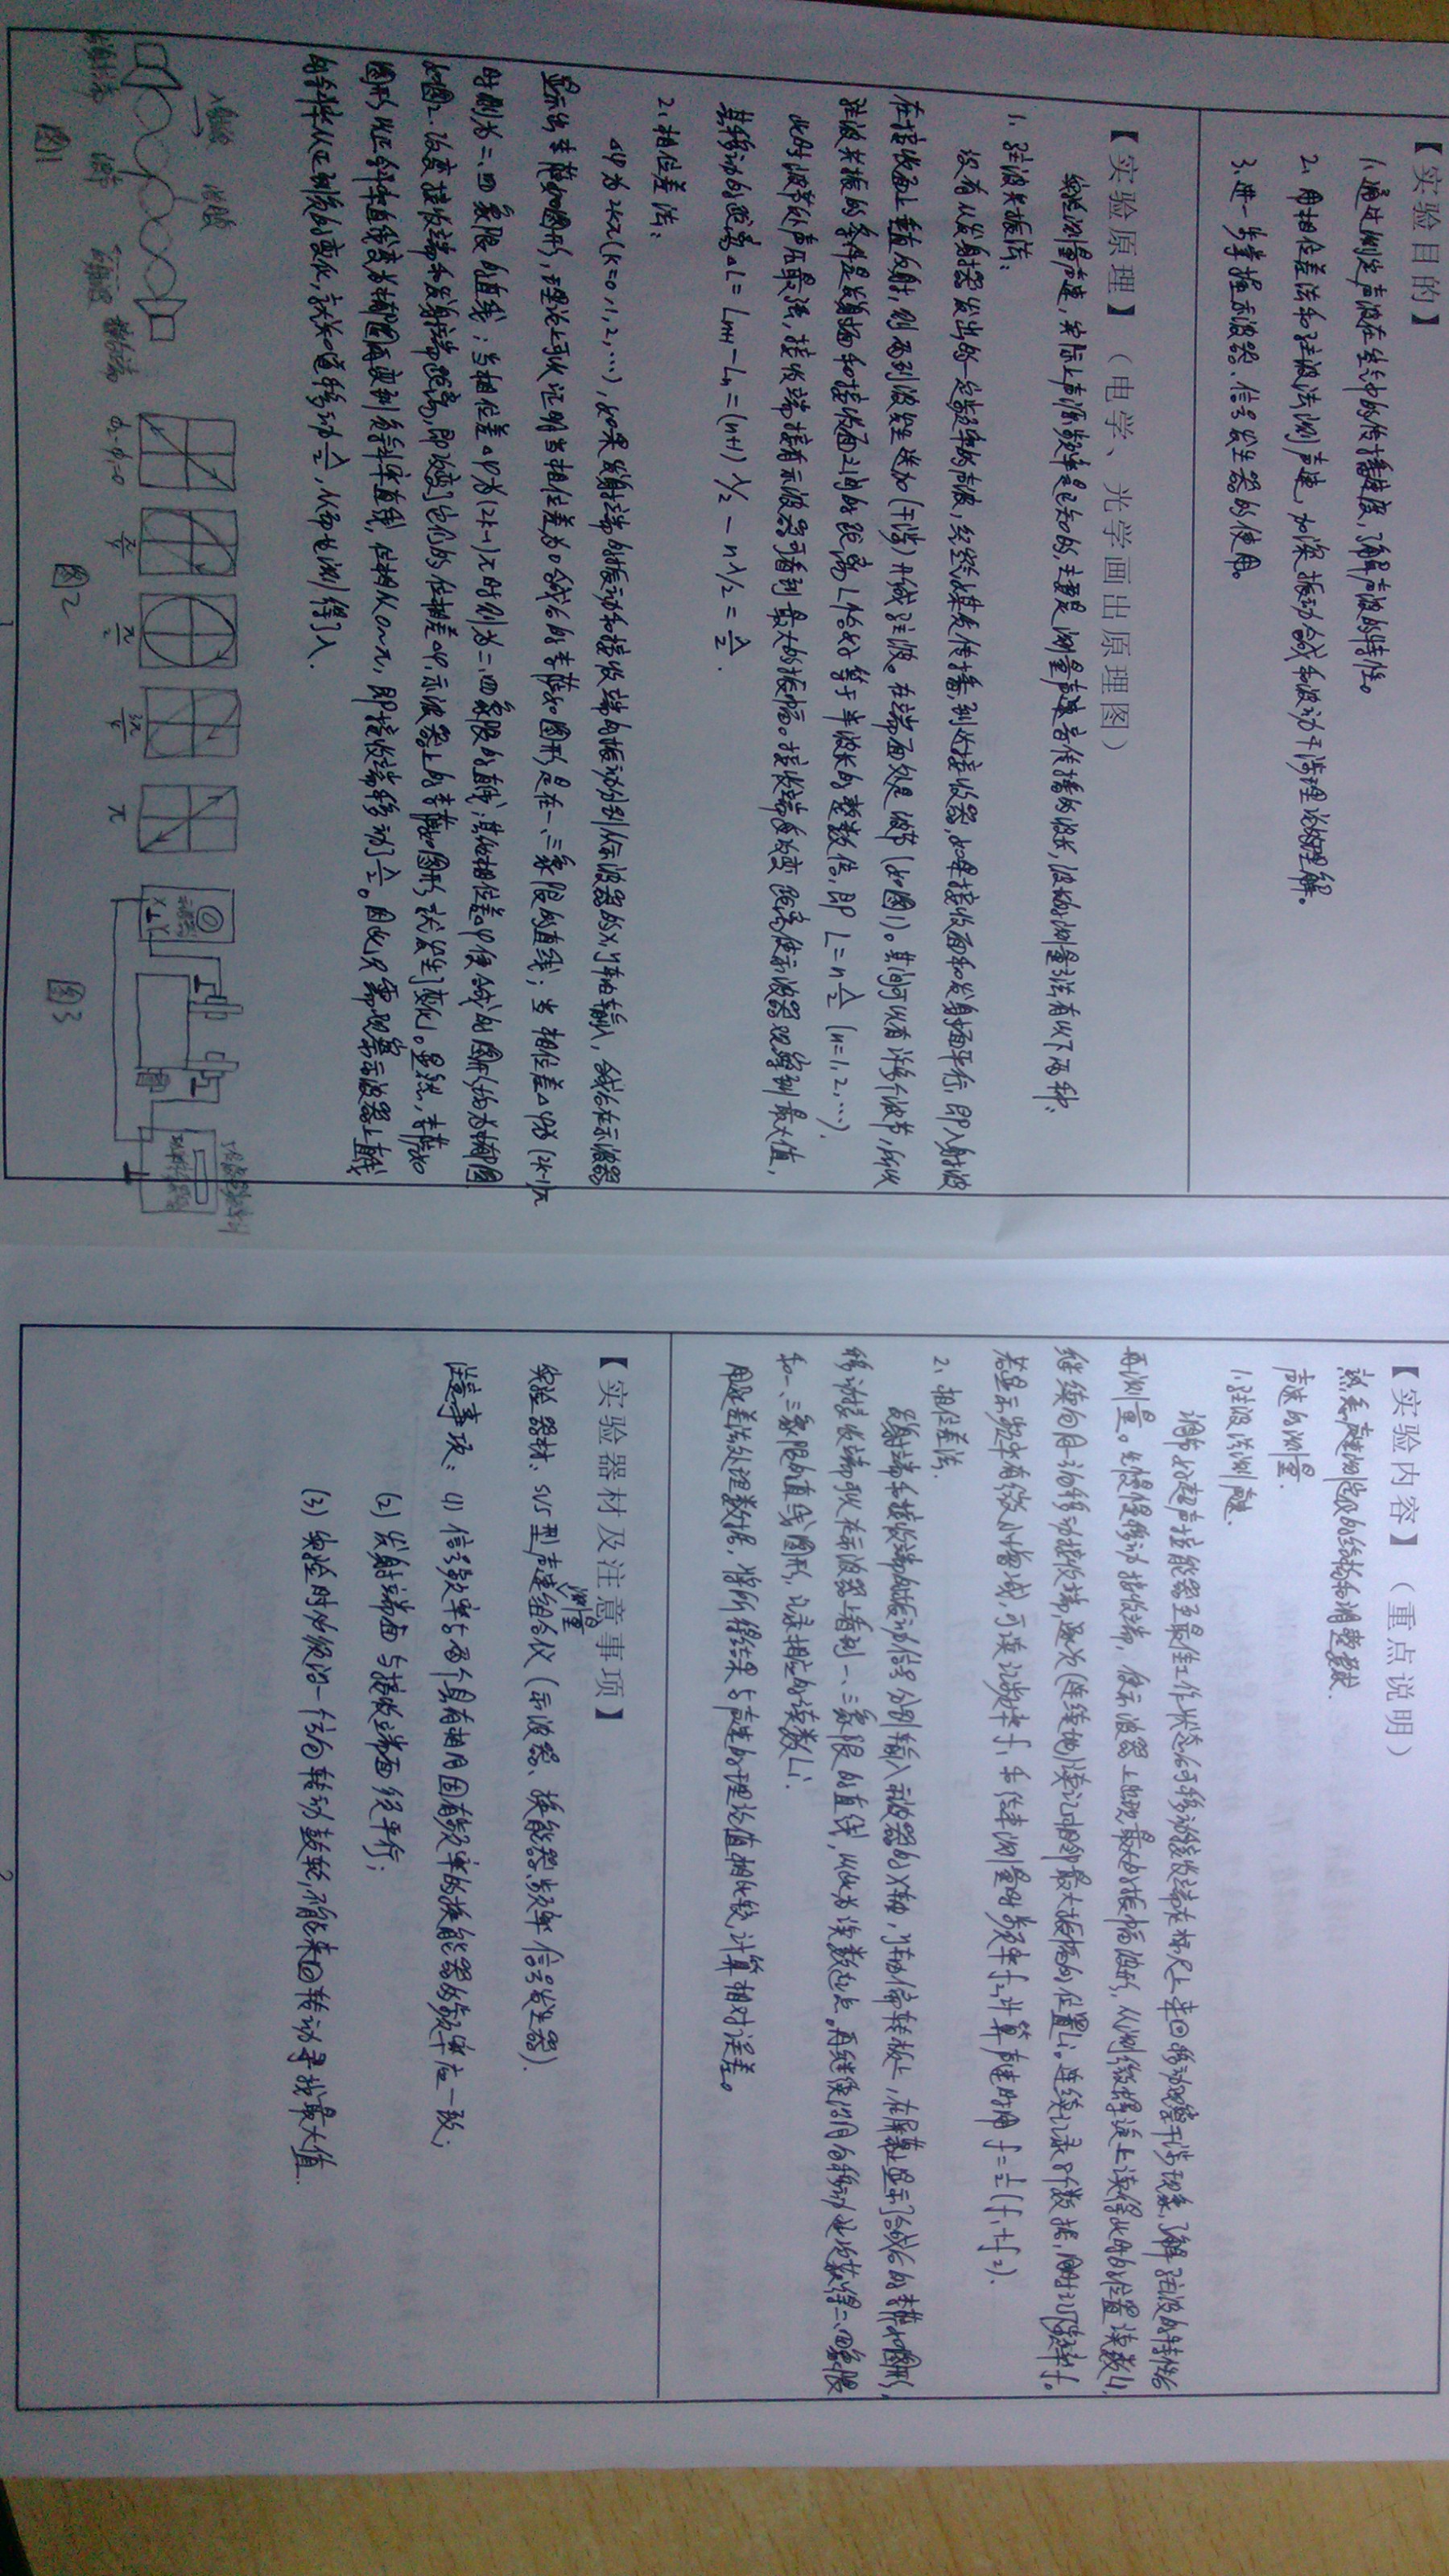 【实验目的】
1、通过测定声波在空气中的传播速度，了解声波的特性。
2、用相位差法和驻波法测声速，加深振动合成和波动干涉理论的理解。
3、进一步掌握示波器、信号发生器的使用。
【实验原理】（电学、光学画出原理图）
实验测量声速，实际上声源频率是已知的，主要是测量声速音传播的波长，波长的测量方法有以下两种：
1、驻波共振法：
设有从发射器发出的一定频率的声波，经空气媒质传播，到达接收器，如果接收面和发射面平行，即入射波
在接收面上垂直反射，则两列波发生迭加（干涉）并成驻波。在端面处是波节（如图1）。其间可以有许多个波节，所以
驻波共振的条件是发射面和接收面之间的距离L恰好等于半波长的整数倍，即 L=n λ/2 (n=1,2,…)，
此时波节处声压最强，接收端接有示波器可看到最大的振幅。接收端每改变距离使示波器观察到最大值，
其移动的距离△L= Ln+1-Ln=(n+1) λ/2 - nλ/2 = λ/2 .
2、相位差法：
△φ为2kπ(k=0,1,2,…)，如果发射端的振动和接收端的振动分别从示波器的X,Y轴输入，合成后在示波器
显示出李萨如图形，理论上可以证明当相位差为0合成后的李萨如图形是在一、三象限的直线；当相位差△φ为(2k-1)π
时则为二、四象限的直线；当相位差△φ为(2k-1)π时则为二、四象限的直线；其他相位差△φ使合成的图形均为椭圆
如图2. 改变接收端和发射端距离，即改变了它们的位相差△φ，示波器上的李萨如图形就发生了变化。显然，李萨如
图形从正斜率直线变为椭圆再变到负斜率直线，位相从0~π，即接收端移动了λ/2。因此只需观察示波器上直线
的斜率从正到负的变化，就知道移动λ/2，从而也测得了λ.
入射波 波腹
发射端 波节 反射波 接收端
图1
φ2-φ1=0 π/4 π/2 3π/4 π
图2
示波器
X⊥Y
图3
1
【实验内容】（重点说明）
熟悉声速测定仪的结构和调整要求.
声速的测量.
1.驻波法测声速.
调节好超声换能器至最佳工作状态后可移动接收端在标尺上来回移动观察干涉现象，了解驻波的特性后
再测量。先慢慢移动接收端，使示波器上出现最大的振幅波形，从测微螺旋上读得此时的位置读数L1，
继续向同一方向移动接收端，逐次(连续地)读记相邻最大振幅的位置Li。连续记录8个数据，同时记下频率f。
若显示频率有微小增减，可读记频率f1和结束测量时频率f2,计算声速时用 f=½(f1+f2).
2、相位差法.
发射端和接收端的振动信号分别输入示波器的X轴，Y轴偏转板上，在屏幕上显示了合成后的李萨如图形，
移动接收端可以在示波器上看到一、三象限的直线，以此为读数起点。再继续沿同向移动逐次获得二、四象限
和一、三象限的直线图形，记录相应的读数Li.
用逐差法处理数据，将所得结果与声速的理论值相比较，计算相对误差。
【实验器材及注意事项】
测量
实验器材：SV5型声速组合仪（示波器、换能器、频率信号发生器）.
注意事项：(1) 信号频率与两个具有相同固有频率的换能器的频率应一致；
(2) 发射端面与接收端面须平行；
(3) 实验时必须沿一个方向转动鼓轮，不能来回转动寻找最大值.
2